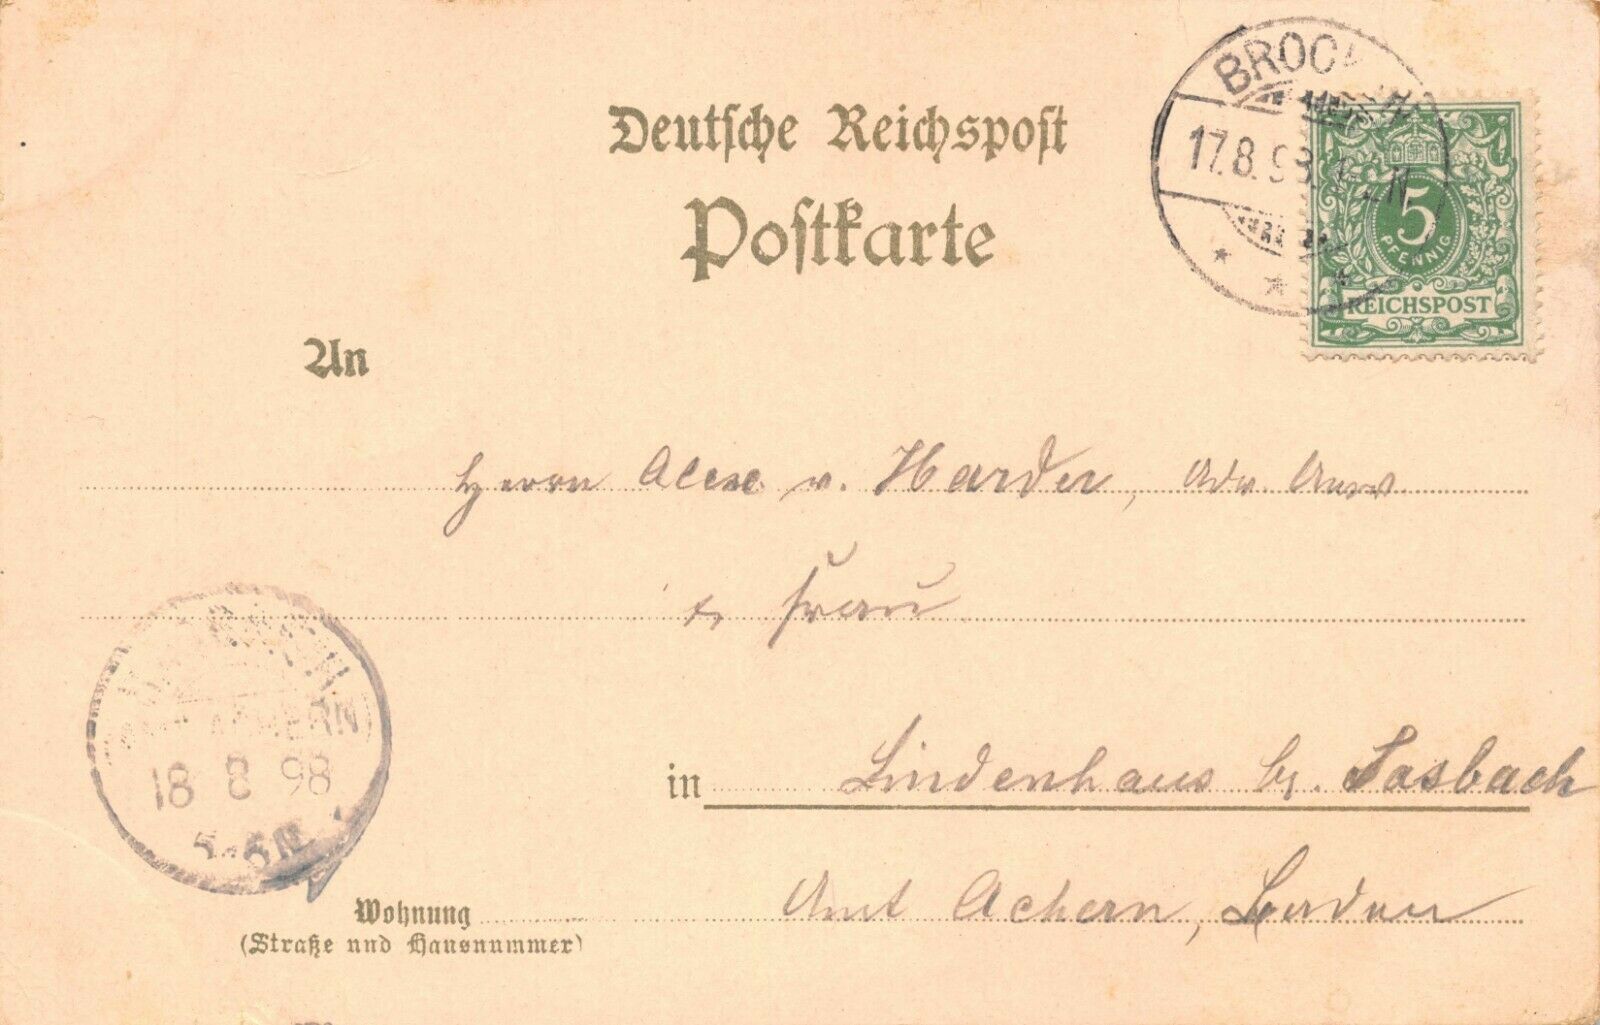 BROC
17.8.98. N.
5
PFENNIG
REICHSPOST
Deutsche Reichspost
Postkarte
An
Herrn Alex v. Harder,
u. Frau
in Lindenhaus b. Sasbach
Amt Achern, Baden
ACHERN
18 8 98
5-6N
Wohnung
(Straße und Hausnummer)